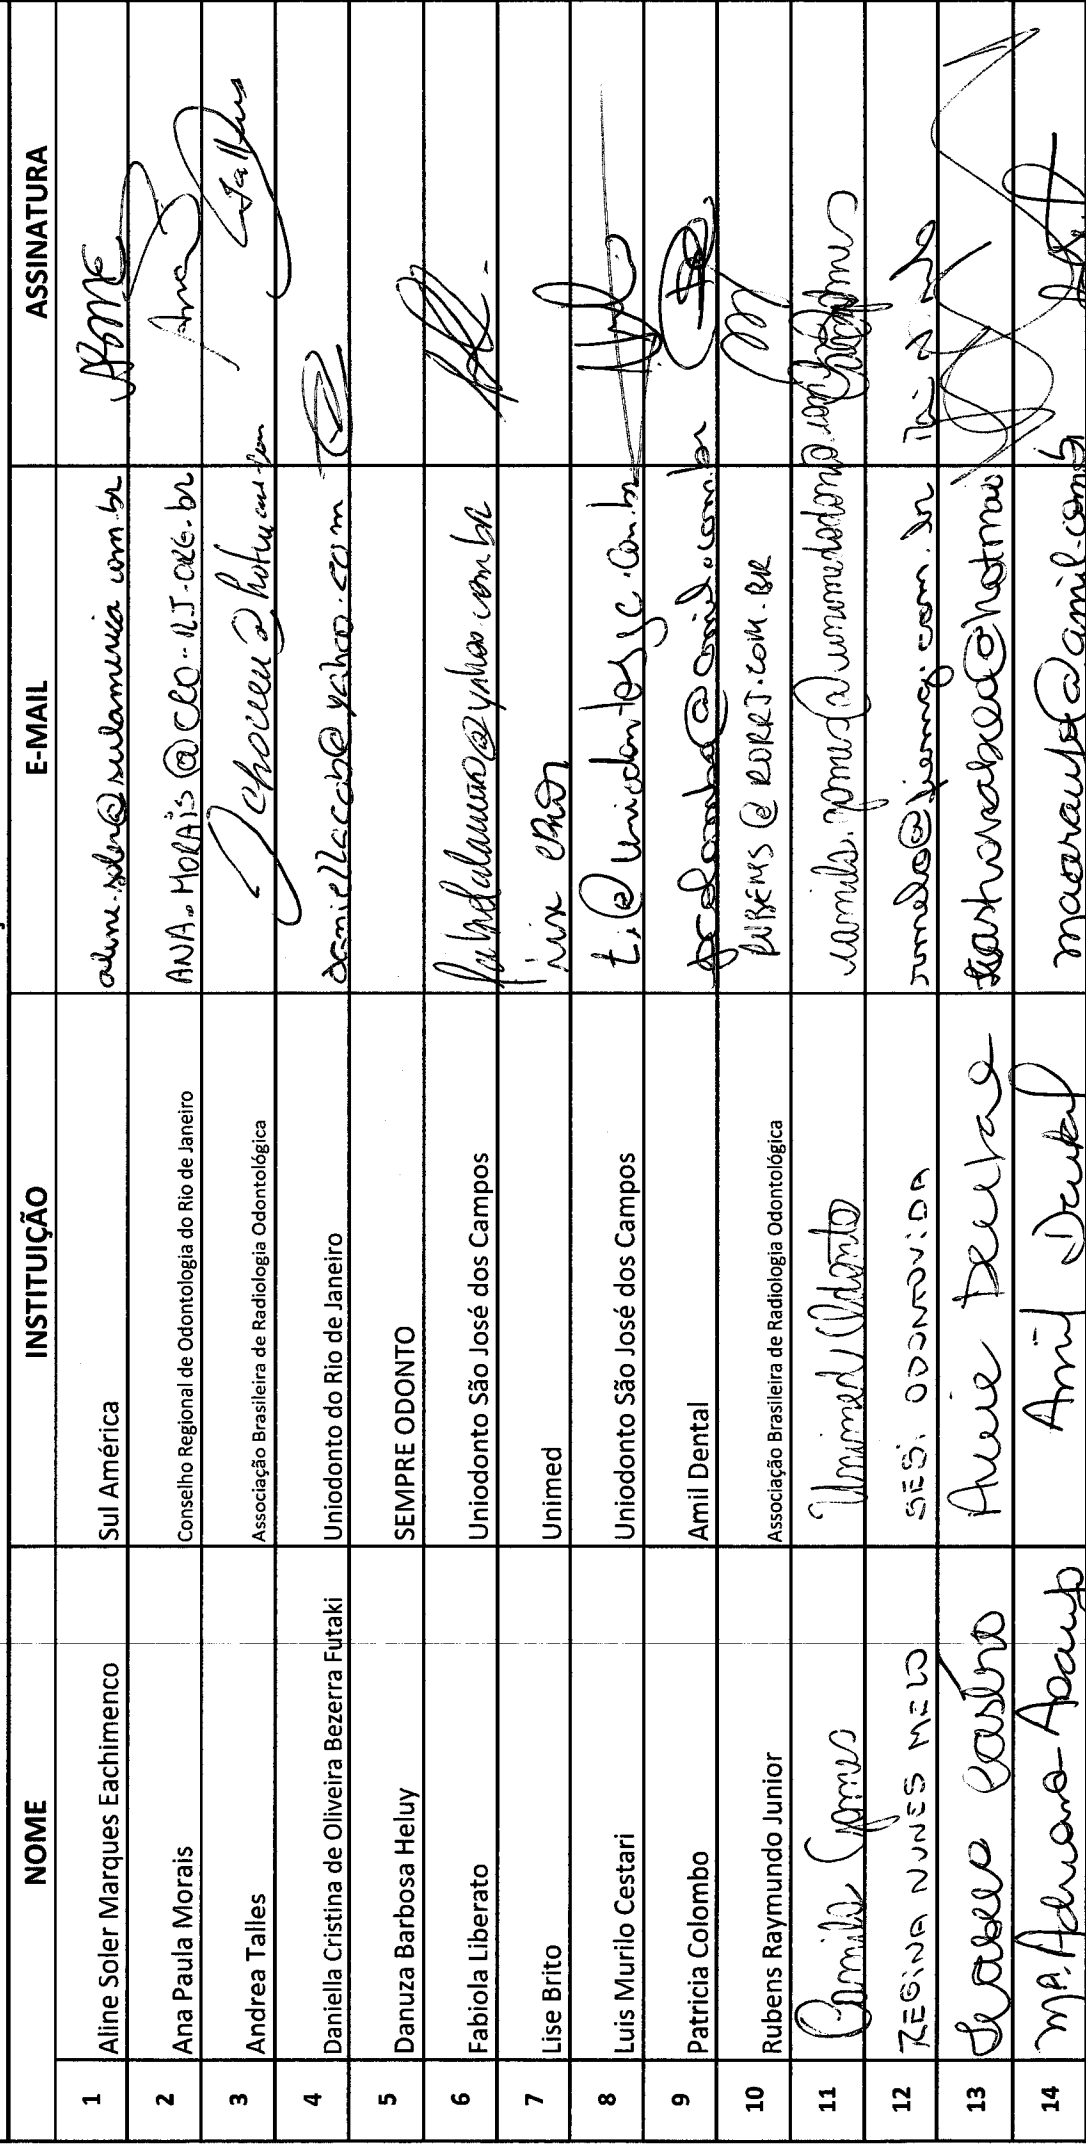 NOME INSTITUIÇÃO E-MAIL ASSINATURA
1 Aline Soler Marques Eachimenco Sul América aline.soler@sulamerica.com.br
2 Ana Paula Morais Conselho Regional de Odontologia do Rio de Janeiro ANA.MORAIS@CRO-RJ.ORG.br Ana
3 Andrea Talles Associação Brasileira de Radiologia Odontológica
4 Daniella Cristina de Oliveira Bezerra Futaki Uniodonto do Rio de Janeiro daniellacob@yahoo.com
5 Danuza Barbosa Heluy SEMPRE ODONTO
6 Fabiola Liberato Uniodonto São José dos Campos
7 Lise Brito Unimed
8 Luis Murilo Cestari Uniodonto São José dos Campos t.i@uniodontosjc.com.br
9 Patricia Colombo Amil Dental pcolombo@amil.com.br
10 Rubens Raymundo Junior Associação Brasileira de Radiologia Odontológica RUBENS@RORRJ.COM.BR
11 Camila Gomes Unimed Odonto camila.gomes@unimedodonto.com.br
12 REGINA NUNES MELO SESi ODONTOViDA
13 Castro
14 Mª. Adriana Araujo Amil Dental maaraujo@amil.com.b